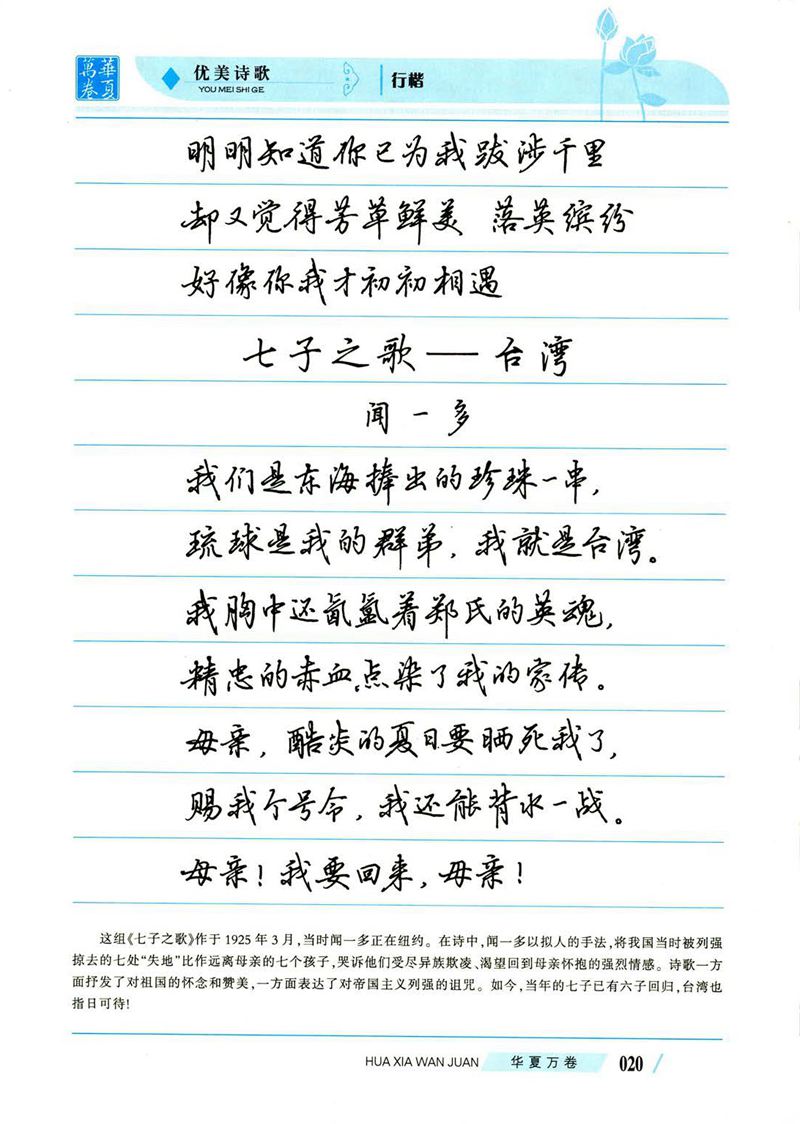 華夏萬卷
优美诗歌
YOU MEI SHI GE
行楷
明明知道你已为我跋涉千里
却又觉得芳草鲜美 落英缤纷
好像你我才初初相遇
七子之歌——台湾
闻一多
我们是东海捧出的珍珠一串，
琉球是我的群弟，我就是台湾。
我胸中还氤氲着郑氏的英魂，
精忠的赤血点染了我的家传。
母亲，酷炎的夏日要晒死我了，
赐我个号令，我还能背水一战。
母亲！我要回来，母亲！
这组《七子之歌》作于1925年3月，当时闻一多正在纽约。在诗中，闻一多以拟人的手法，将我国当时被列强
掠去的七处“失地”比作远离母亲的七个孩子，哭诉他们受尽异族欺凌、渴望回到母亲怀抱的强烈情感。诗歌一方
面抒发了对祖国的怀念和赞美，一方面表达了对帝国主义列强的诅咒。如今，当年的七子已有六子回归，台湾也
指日可待！
HUA XIA WAN JUAN 华夏万卷 020